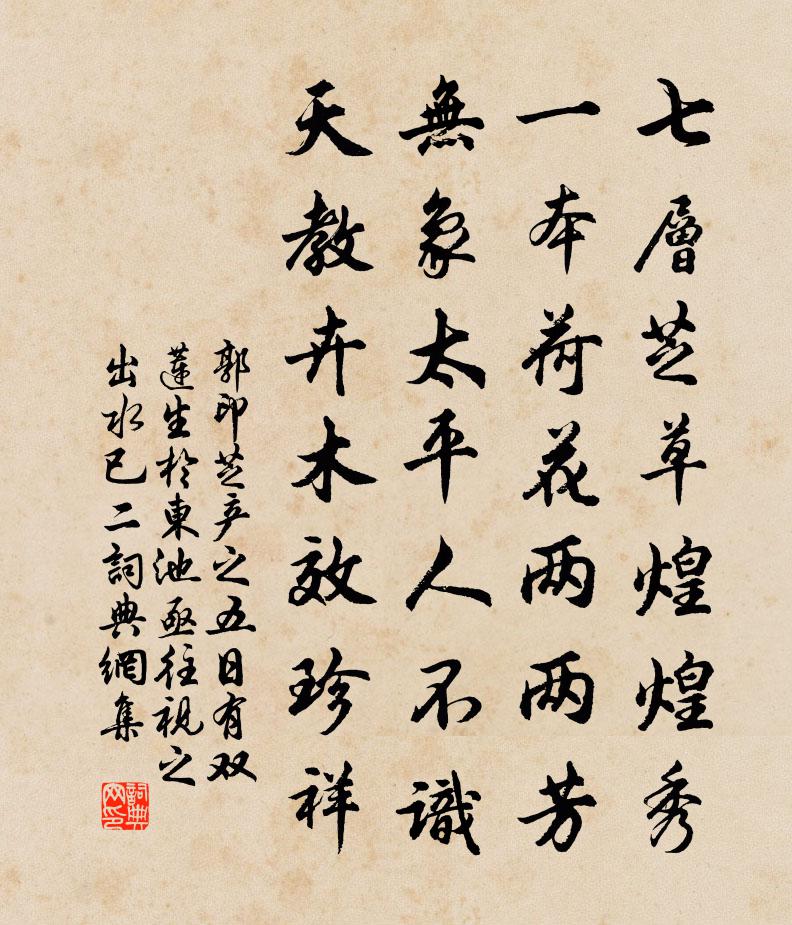 七層芝草煌煌秀
一本荷花两两芳
無象太平人不識
天教卉木效珍祥
郭印芝产之五日有双
蓮生於東池亟往視之
出水已二詞典網集
詞典网印